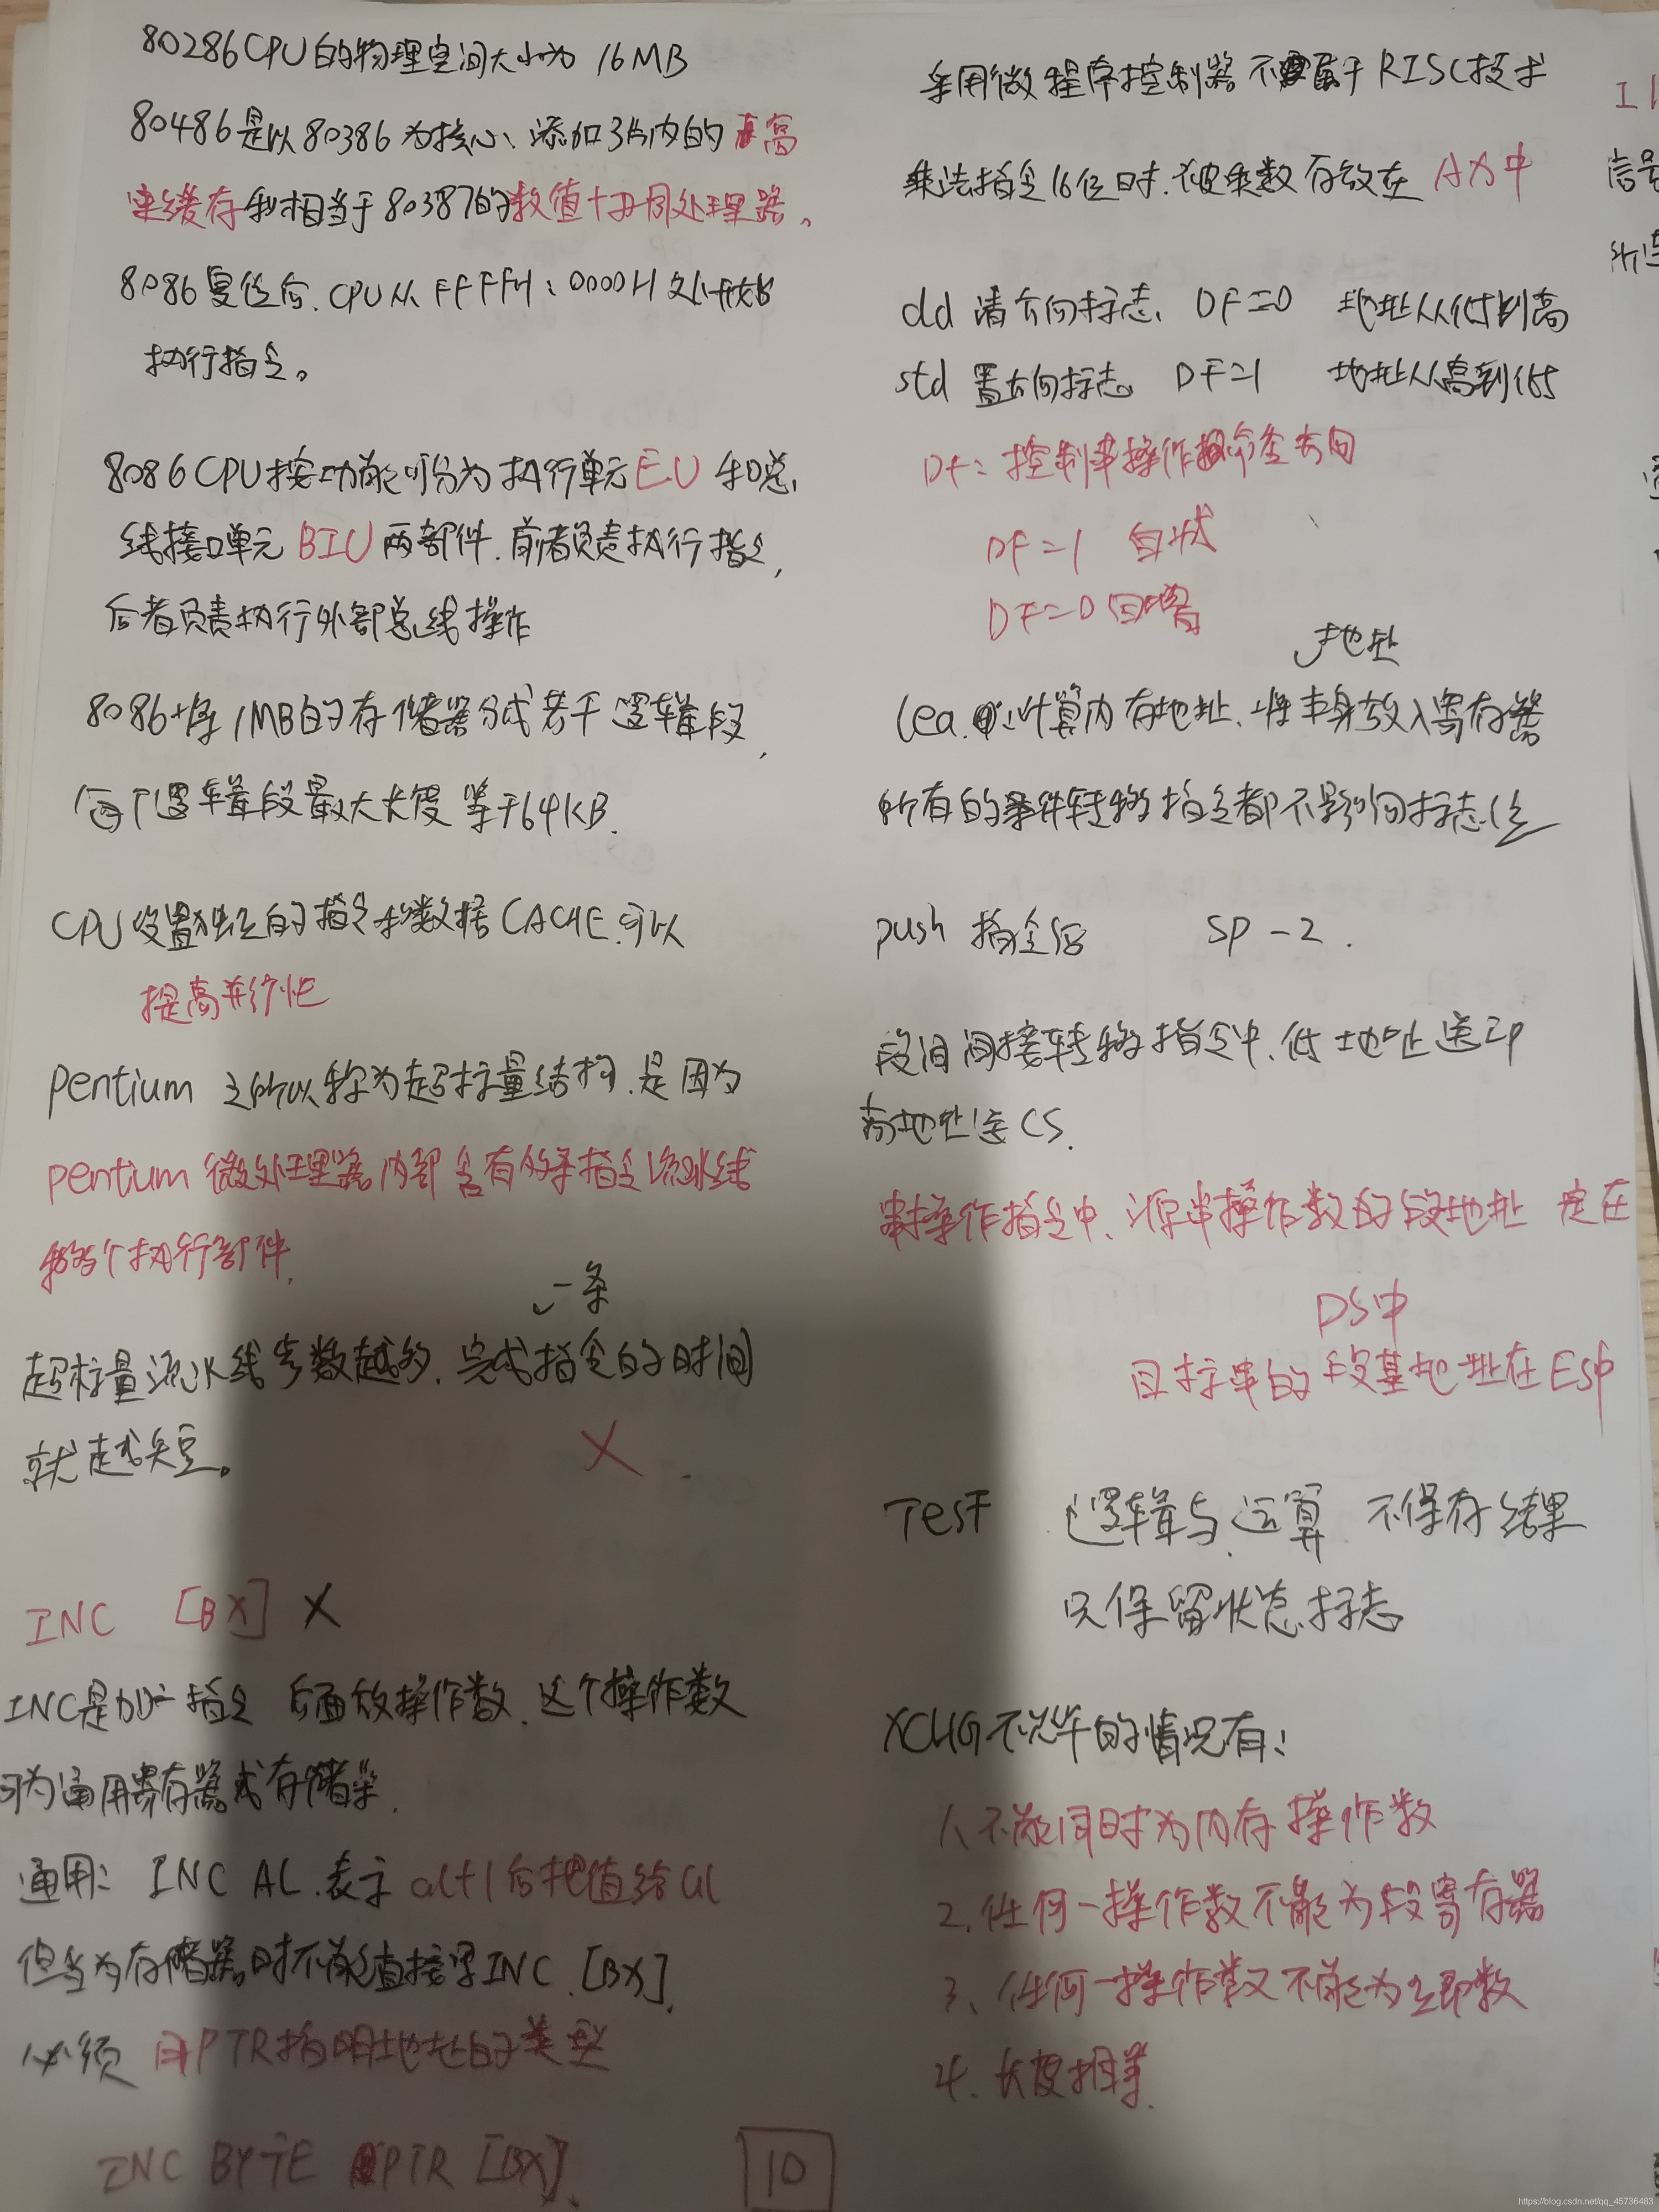 80286CPU的物理空间大小为 16MB
80486是以80386为核心、添加了片内的高
速缓存和相当于80387的数值协同处理器。
8086复位后.CPU从FFFFH:0000H处开始
执行指令。
8086CPU按功能可分为执行单元EU和总
线接口单元BIU两部件.前者负责执行指令,
后者负责执行外部总线操作
8086将1MB的存储器分成若干逻辑段,
每个逻辑段最大长度等于64KB.
CPU设置独立的指令和数据CACHE.可以
提高并行性
pentium 之所以称为超标量结构.是因为
pentium微处理器内部含有多条指令流水线
和多个执行部件.
一条
超标量流水线步数越多.完成指令的时间
就越短。 X
INC [BX] X
INC是加一指令 后面放操作数.这个操作数
可为通用寄存器或存储器.
通用: INC AL.表示 al+1后把值给al
但当为存储器时不能直接写INC.[BX].
必须 用PTR指明地址的类型
INC BYTE PTR [BX].
10
采用微程序控制器不属于RISC技术
乘法指令16位时.被乘数存放在AX中
cld 清方向标志. DF=0 地址从低到高
std 置方向标志 DF=1 地址从高到低
DF:控制串操作指令方向
DF=1 自减
DF=0 自增
地址
lea.计算内存地址.将本身放入寄存器
所有的条件转移指令都不影响标志位
push 指令后 SP-2.
段间间接转移指令中.低地址送IP
高地址送CS.
串操作指令中.源串操作数的段地址 定在
DS中
目标串的段基地址在ES中
TEST 逻辑与运算 不保存结果
只保留状态标志
XCHG不允许的情况有:
1、不能同时为内存操作数
2.任何一操作数不能为段寄存器
3、任何一操作数不能为立即数
4.长度相等.
信号
https://blog.csdn.net/qq_45736483